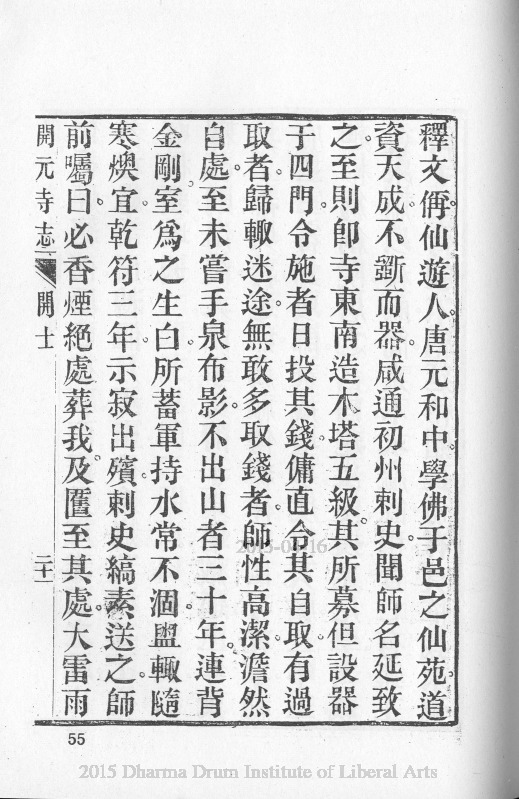 釋文偁仙遊人唐元和中學佛于邑之仙苑道
資天成不斲而器咸通初州刺史聞師名延致
之至則卽寺東南造木塔五級其所募但設器
于四門令施者日投其錢傭直令其自取有過
取者歸輙迷途無敢多取錢者師性高潔澹然
自處至未嘗手泉布影不出山者三十年連背
金剛室爲之生白所蓄軍持水常不涸盥輙隨
寒燠宜乾符三年示寂出殯刺史縞素送之師
前囑曰必香煙絕處葬我及匶至其處大雷雨
開元寺志 開士 二十一
55
2015-03-16
2015 Dharma Drum Institute of Liberal Arts